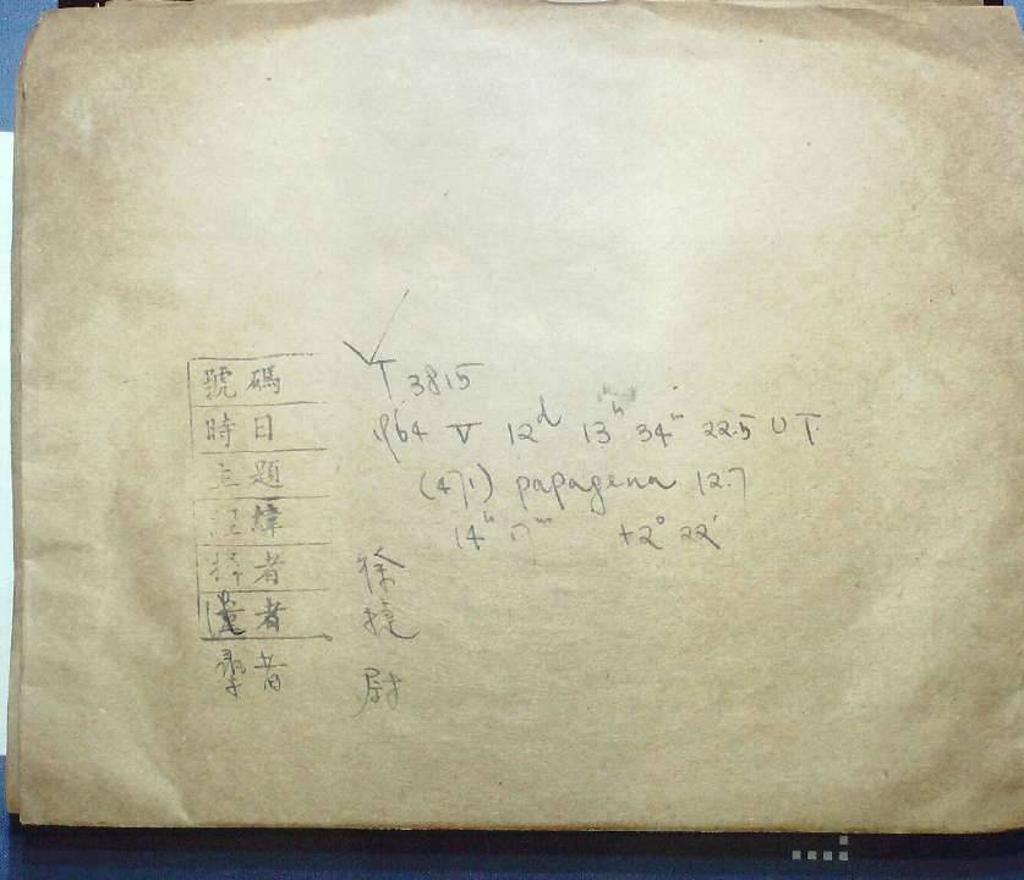 號碼 T 3815
時日 1964 V 12ᵈ 13ʰ 34ᵐ 22.5 UT.
主題 (471) papagena 12.7
經緯 14ʰ 17ᵐ +2° 22'
者 徐
者
者 尉